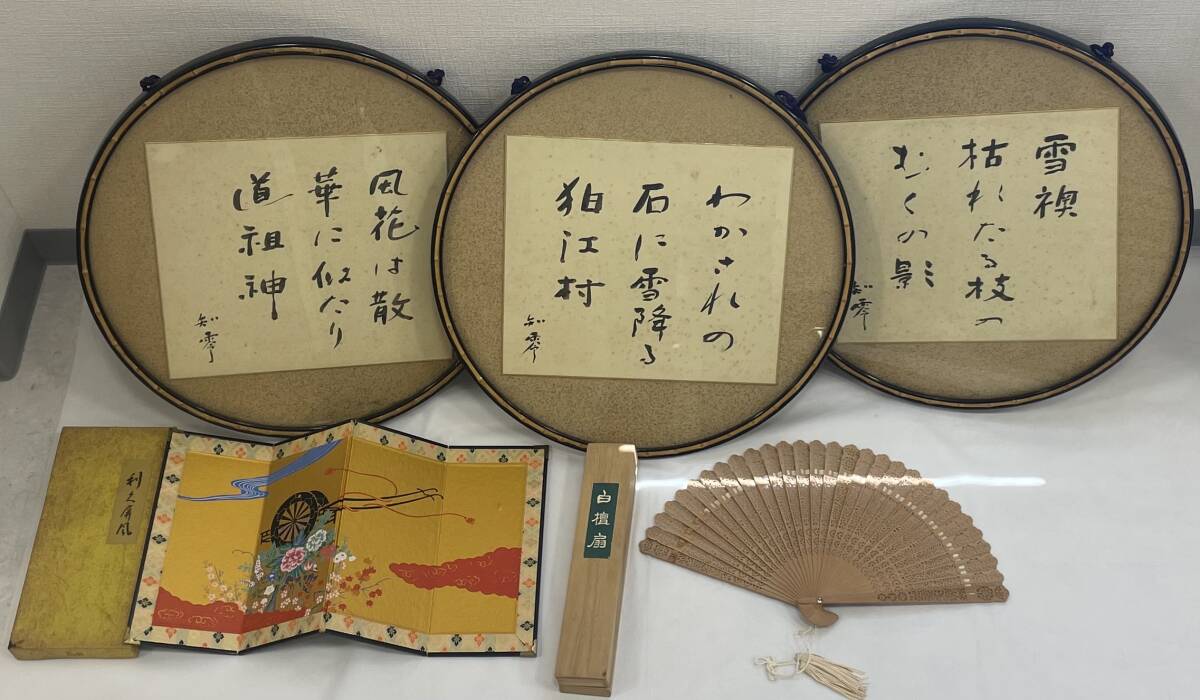 風花は散
華に似たり
道祖神
わかされの
石に雪降る
狛江村
雪襖
枯れたる枝の
むくの影
利久屏風
白檀扇